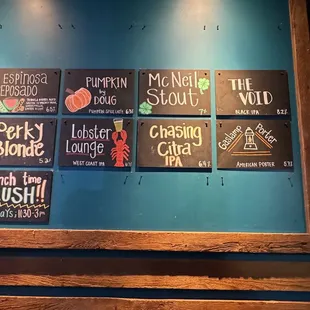 Espinosa
Reposado
6%
PUMPKIN
by
DOUG
PUMPKIN SPICE LATTE
6%
McNeil
Stout
7%
THE
VOID
BLACK IPA
8.2%
Perky
Blonde
5.2%
Lobster
Lounge
WEST COAST IPA
Chasing
Citra
IPA
6.9%
Gaslamp Porter
AMERICAN PORTER
nch time
USH!!
AYS; 11:30-3PM